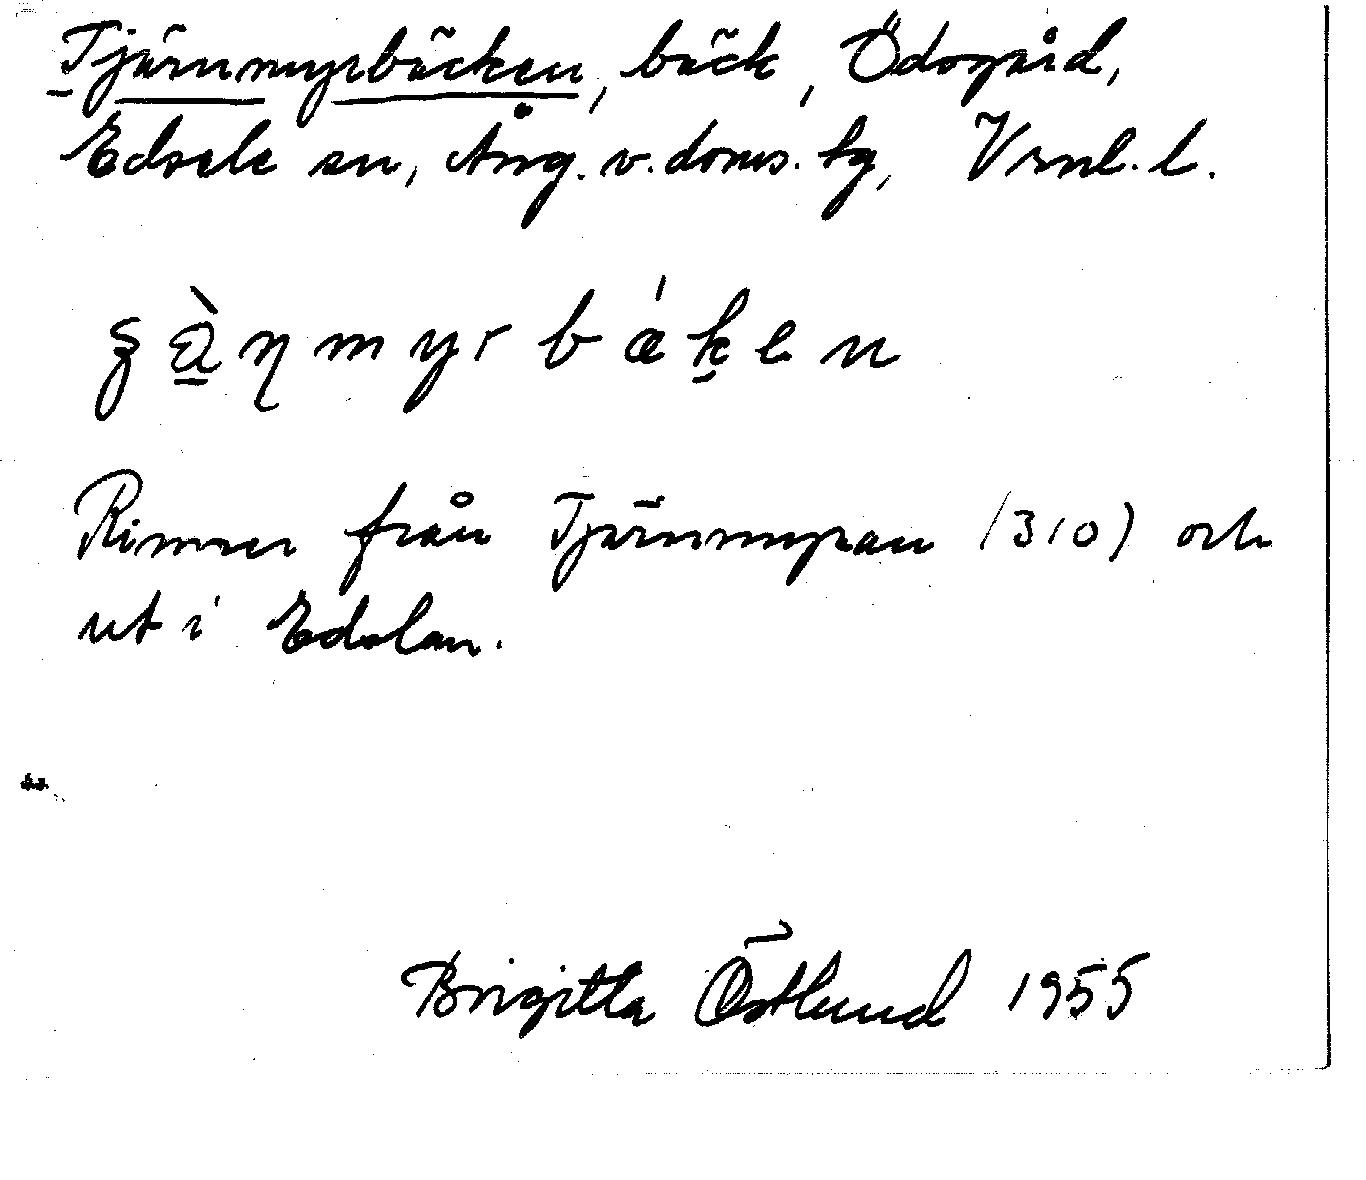 Tjärnmyrbäcken, bäck, Ödsgård,
Edsele sn, Ång. v. doms. tg, Vrnl. l.
Rinner från Tjärnmyran (310) och
ut i Edslan.
Brigitta Östlund 1955